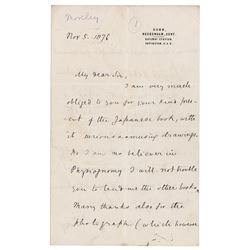 Moseley
(1
DOWN,
BECKENHAM, KENT.
RAILWAY STATION
ORPINGTON. S.E.R.
Nov 5. 1876
My dear Sir,
I am very much
obliged to you for your kind pres-
ent of the Japanese book, with
its curious & amusing drawings.
As I am no believer in
Physiognomy I will not trouble
you to lend me the other book.
Many thanks also for the
photograph (which however